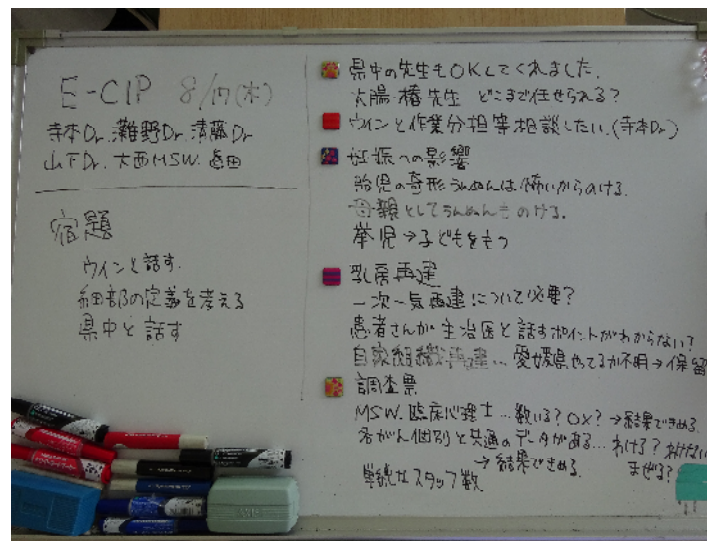 E-CIP 8/17(木)
寺本Dr. 灘野Dr. 清藤Dr
山下Dr. 大西MSW.
宿題
ウインと話す.
細部の定義を考える
県中と話す
県中の先生もOKしてくれました.
太陽 椿先生 どこまで任せられる?
ウインと作業分担等相談したい.(寺本Dr)
妊娠への影響
胎児の奇形うんぬんは怖いからのける.
母親としてうんぬんものける.
挙児→子どもをもつ
乳房再建
一次一期再建について必要?
患者さんが主治医と話すポイントがわからない?
自家組織再建…愛媛県やってるか不明→保留
調査票
MSW. 臨床心理士…数いる?OX?→結果できめる.
各がん個別と共通のデータがある…わける?わけない
→結果できめる. まぜる?
単純なスタッフ数